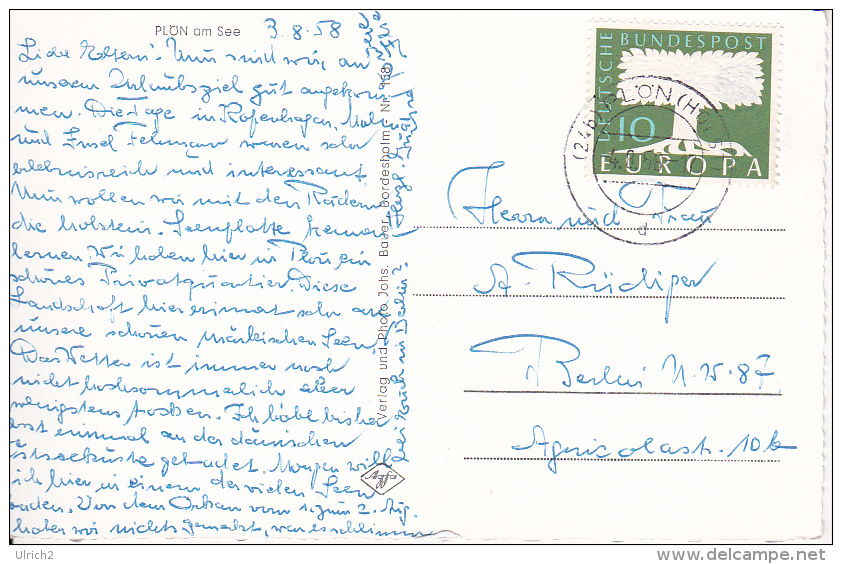 PLÖN am See
3.8.58
Liebe Eltern! Nun sind wir an
unserem Urlaubsziel gut angekom-
men. Die Tage in Kopenhagen,
und Insel Fehmarn waren sehr
erlebnisreich und interessant
Nun wollen wir mit den Rädern
die holstein. Seenplatte kennen
lernen. Wir haben hier in Plön ein
schönes Privatquartier. Diese
Landschaft hier erinnert sehr an
unsere schönen märkischen Seen.
Das Wetter ist immer noch
nicht hochsommerlich aber
wenigstens trocken. Ich habe bisher
erst einmal an der dänischen
Ostseeküste gebadet. Morgen will
ich hier in einem der vielen Seen
baden. Von dem Orkan vom 1. zum 2. Aug.
haben wir nichts gemerkt, war es schlimm
bei Euch in Berlin?
Herzl. Grüße
Verlag und Photo Johs. Bauer, Bordesholm, Nr. 158
DEUTSCHE BUNDESPOST
10
EUROPA
(24b) PLÖN (HOLST
d
Herrn und Frau
A. Rüdiger
Berlin N.W. 87
Agricolastr. 10b
Ulrich2
delcampe.net